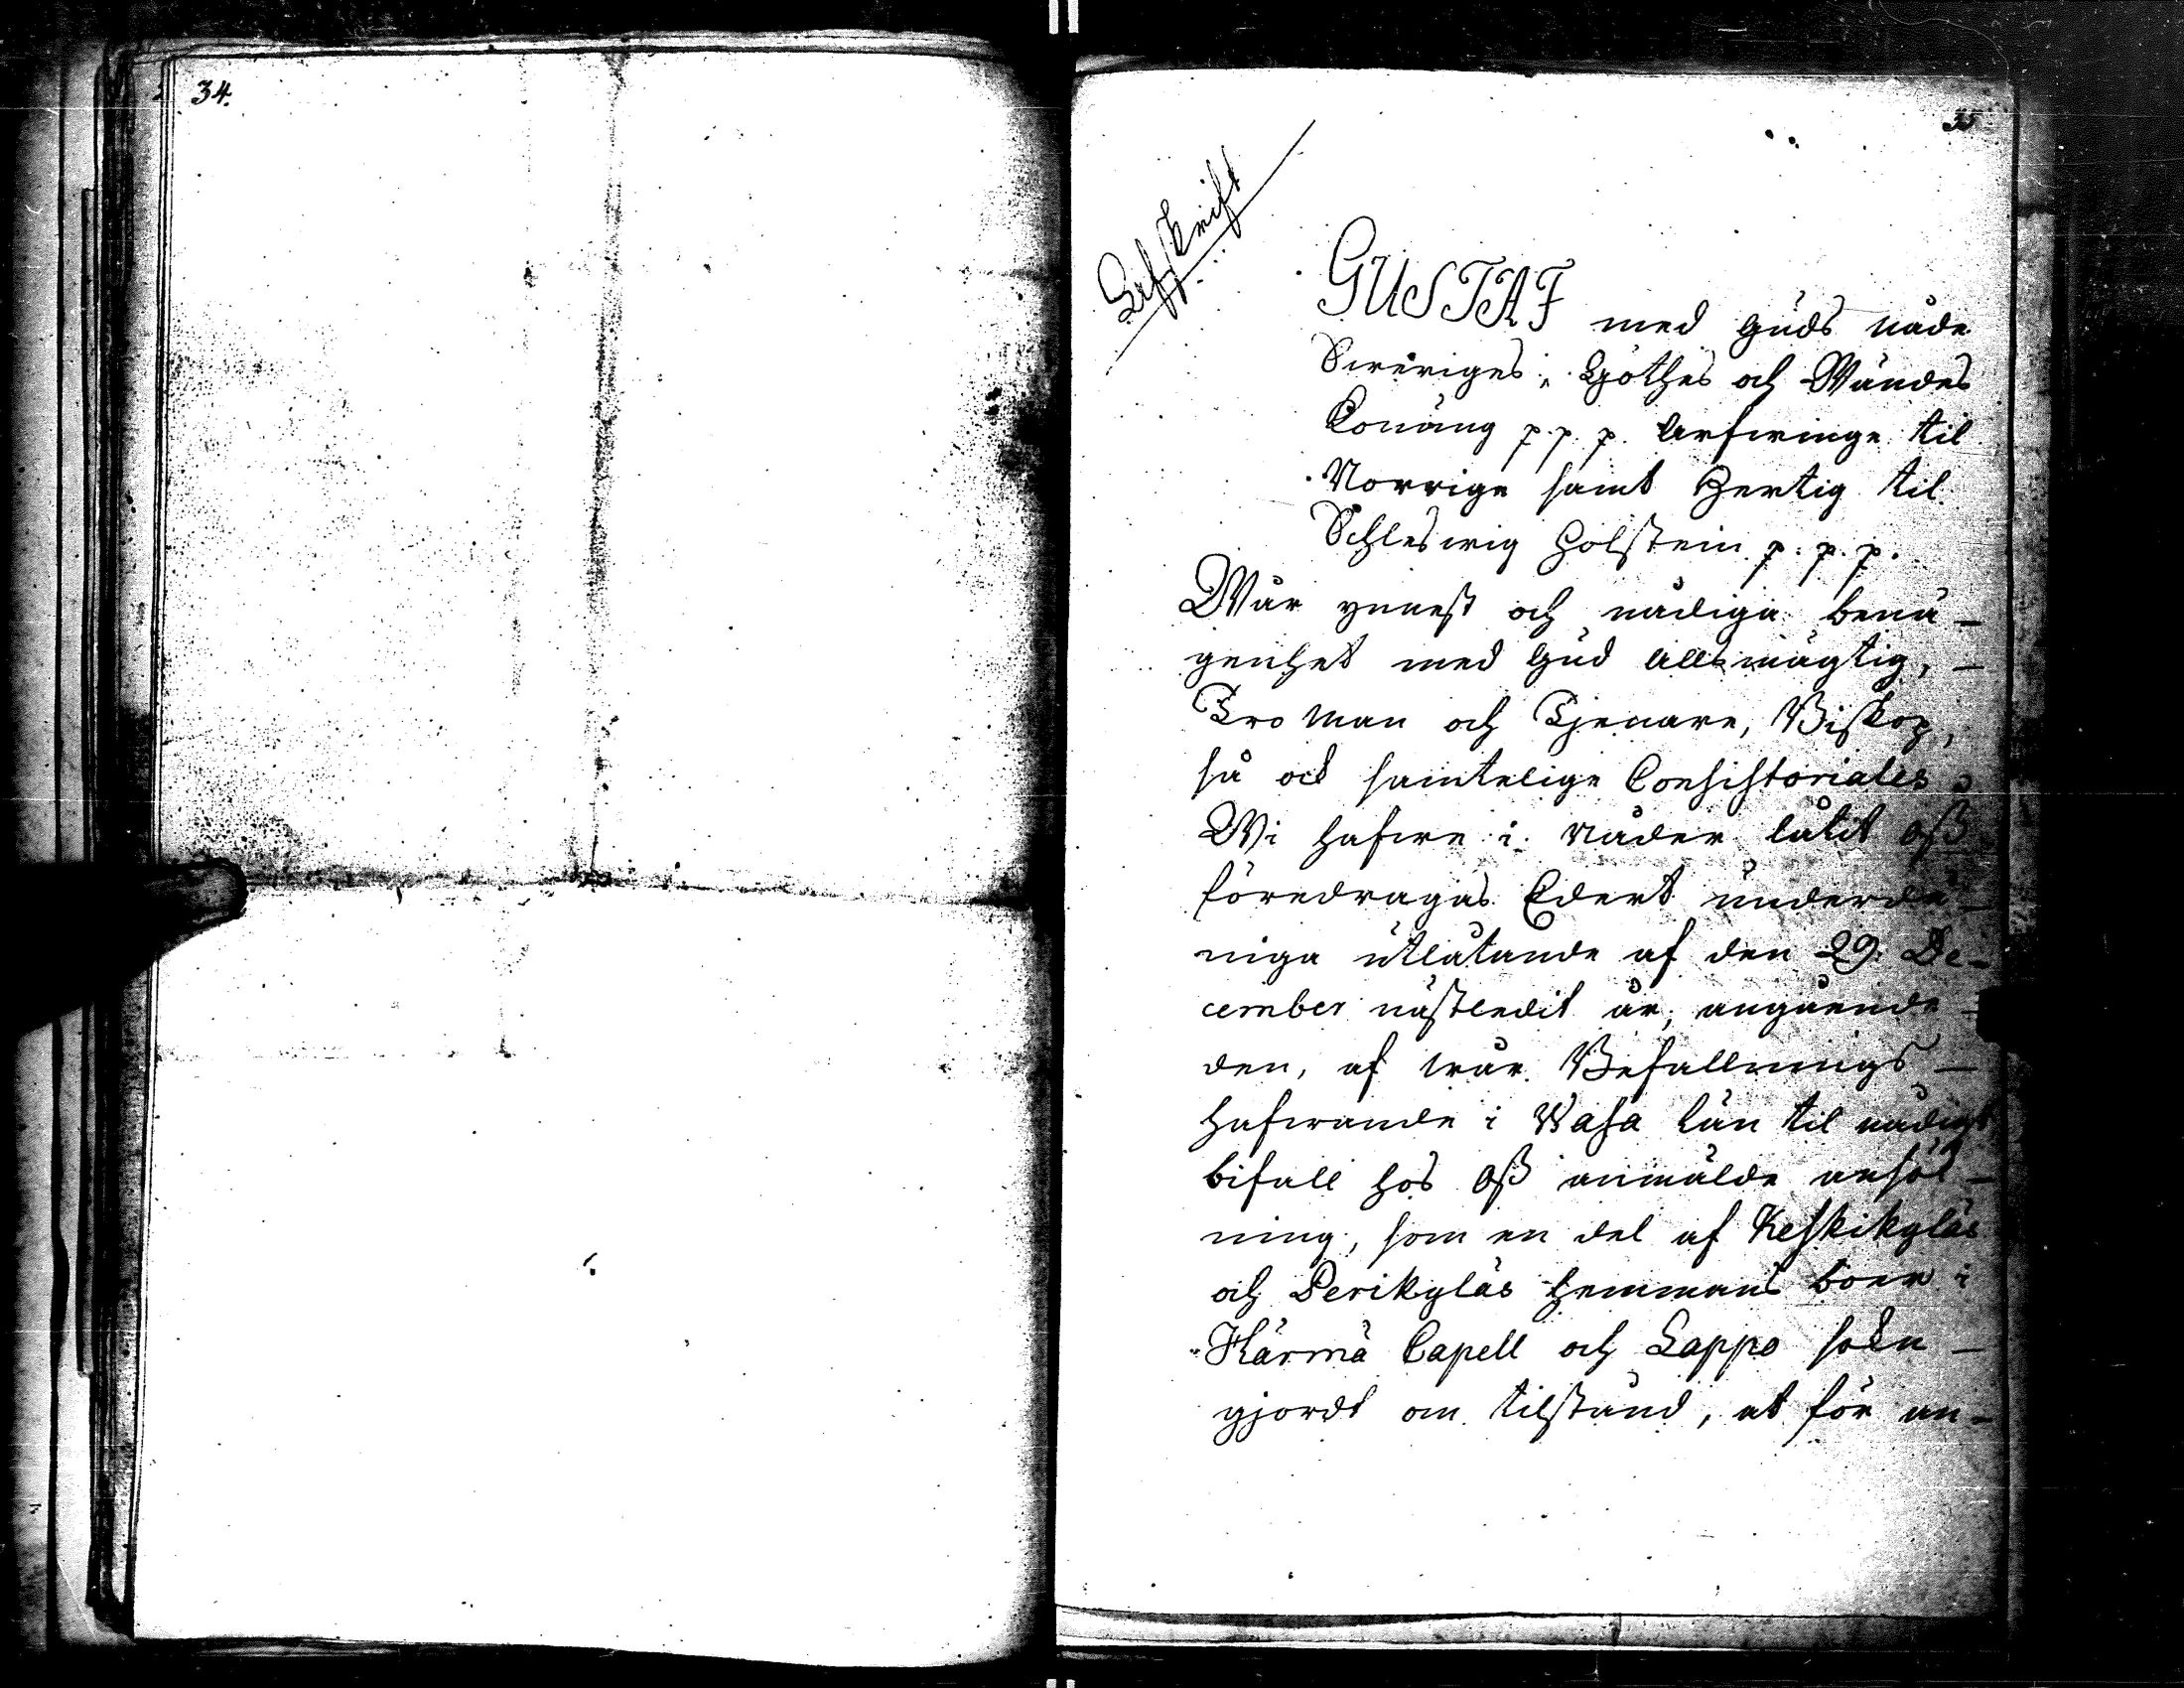 34.
35
Afskrift
GUSTAF med Guds nåde
Sweriges, Göthes och Wändes
Konung p. p. p. Arfwinge til
Norrige samt Hertig til
Schleswig Holstein p. p. p.
Wår ynnest och nådiga benä-
genhet med Gud Allsmägtig, -
Tro Man och Tjenare, Biskop,
så ock samtelige Consistoriales,
Wi hafwe i Nåder låtit Oss
föredragas Edert underdå-
niga utlåtande af den 29. De-
cember nästledit år, angående
den, af wår Befallnings-
hafwande i Wasa Län til nådigt
bifall hos Oss anmälde ansök-
ning, som en del af Keskikyläs
och Perikyläs Hemmans boer i
Härmä Capell och Lappo sokn -
gjordt om tilstånd, at för an-